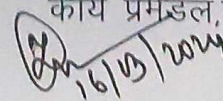 कार्य प्रमंडल
16/03/2024